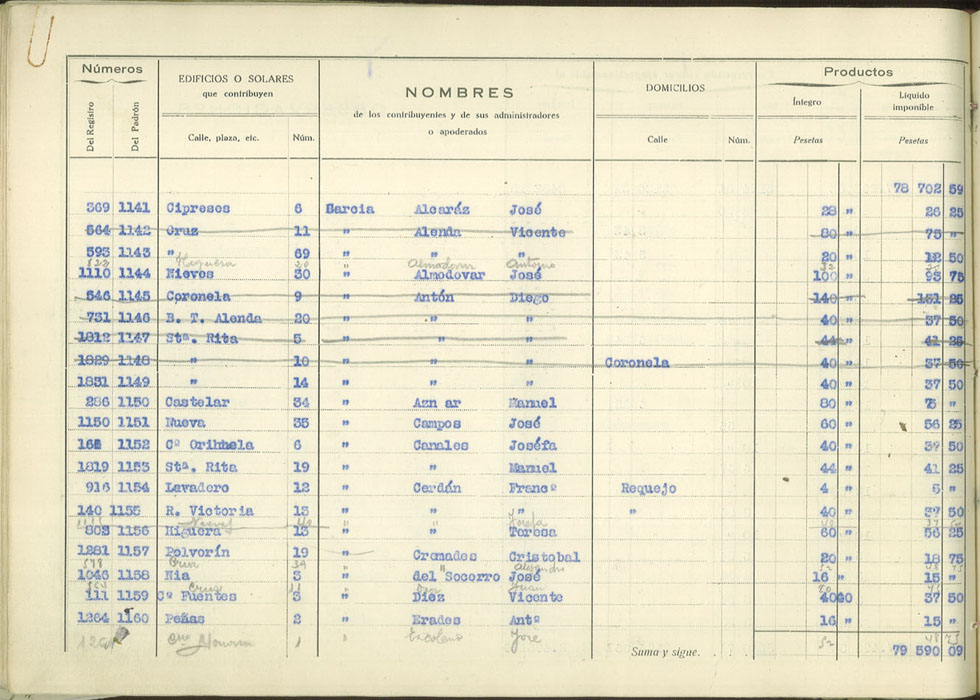 Números
EDIFICIOS O SOLARES
que contribuyen
NOMBRES
de los contribuyentes y de sus administradores
o apoderados
DOMICILIOS
Productos
Del Registro
Del Padrón
Calle, plaza, etc.
Núm.
Calle
Núm.
Íntegro
Líquido
imponible
Pesetas
Pesetas
78 702 59
369 1141 Cipreses 6 Garcia Alcaráz José 28 " 26 25
564 1142 Cruz 11 " Alenda Vicente 80 " 75 "
593 1143 " 69 " " " 20 " 18 50
822 Higuera 20 " Almodovar Antonio 32
1110 1144 Nieves 30 " Almodovar José 100 " 93 75
546 1145 Coronela 9 " Antón Diego 140 " 131 25
731 1146 B. T. Alenda 20 " " " 40 " 37 50
1812 1147 Stª. Rita 5 " " " 44 " 41 25
1829 1148 " 10 " " " Coronela 40 " 37 50
1831 1149 " 14 " " " 40 " 37 50
286 1150 Castelar 34 " Azn ar Manuel 80 " "
1150 1151 Nueva 35 " Campos José 60 " 56 25
1152 Cº Orihhela 6 " Canales Joséfa 40 " 50
1819 1153 Stª. Rita 19 " " Manuel 44 " 41 25
916 1154 Lavadero 12 " Cerdán Francº Requejo 4 " "
140 1155 R. Victoria 13 " " " " 40 " 50
Nieves 40 " " Josefa
802 1156 Higuera 13 " " Teresa 60 " 56 25
1281 1157 Polvorín 19 " Cremades Cristobal 20 " 18 75
578 Cruz 39 " Alejandro 52 48 75
1046 1158 Nia 3 " del Socorro José 16 " 15 "
554 Cruz 11 " Juan
111 1159 Cº Fuentes 3 " Diez Vicente 4040 37 50
1264 1160 Peñas 2 " Erades Antº 16 " 15 "
1 " Escolano José 52 48 75
Suma y sigue. 79 590 09